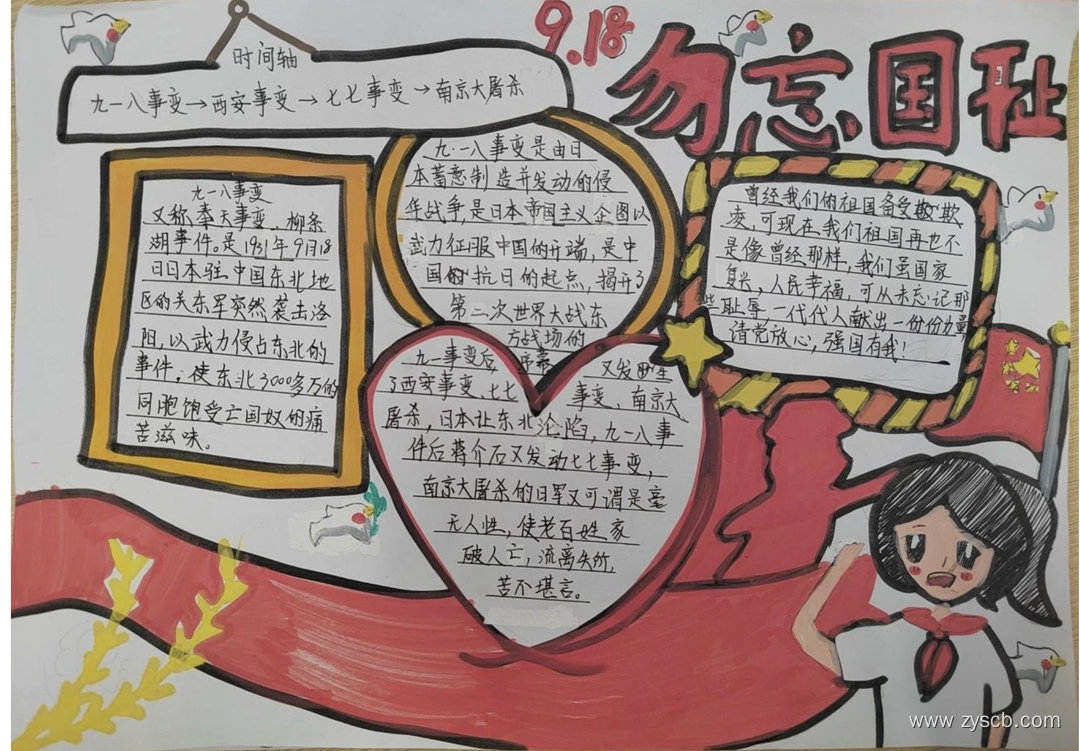 9.18
勿忘国耻
时间轴
九一八事变→西安事变→七七事变→南京大屠杀
九一八事变
又称奉天事变、柳条
湖事件。是1931年9月18
日日本驻中国东北地
区的关东军突然袭击洛
阳,以武力侵占东北的
事件;使东北3000多万的
同胞饱受亡国奴的痛
苦滋味。
九·一八事变是由日
本蓄意制造并发动的侵
华战争,是日本帝国主义企图以
武力征服中国的开端,是中
国的抗日的起点,揭开了
第二次世界大战东
方战场的
序幕
曾经我们的祖国备受欺
凌,可现在我们祖国再也不
是像曾经那样,我们虽国家
复兴,人民幸福,可从未忘记那
些耻辱一代代人献出一份份力量,
请党放心,强国有我!
九一事变后 又发生
了西安事变、七七 事变、南京大
屠杀,日本让东北沦陷,九一八事
件后蒋介石又发动七七事变,
南京大屠杀的日军又可谓是毫
无人性,使老百姓家
破人亡,流离失所,
苦不堪言。
www.zyscb.com